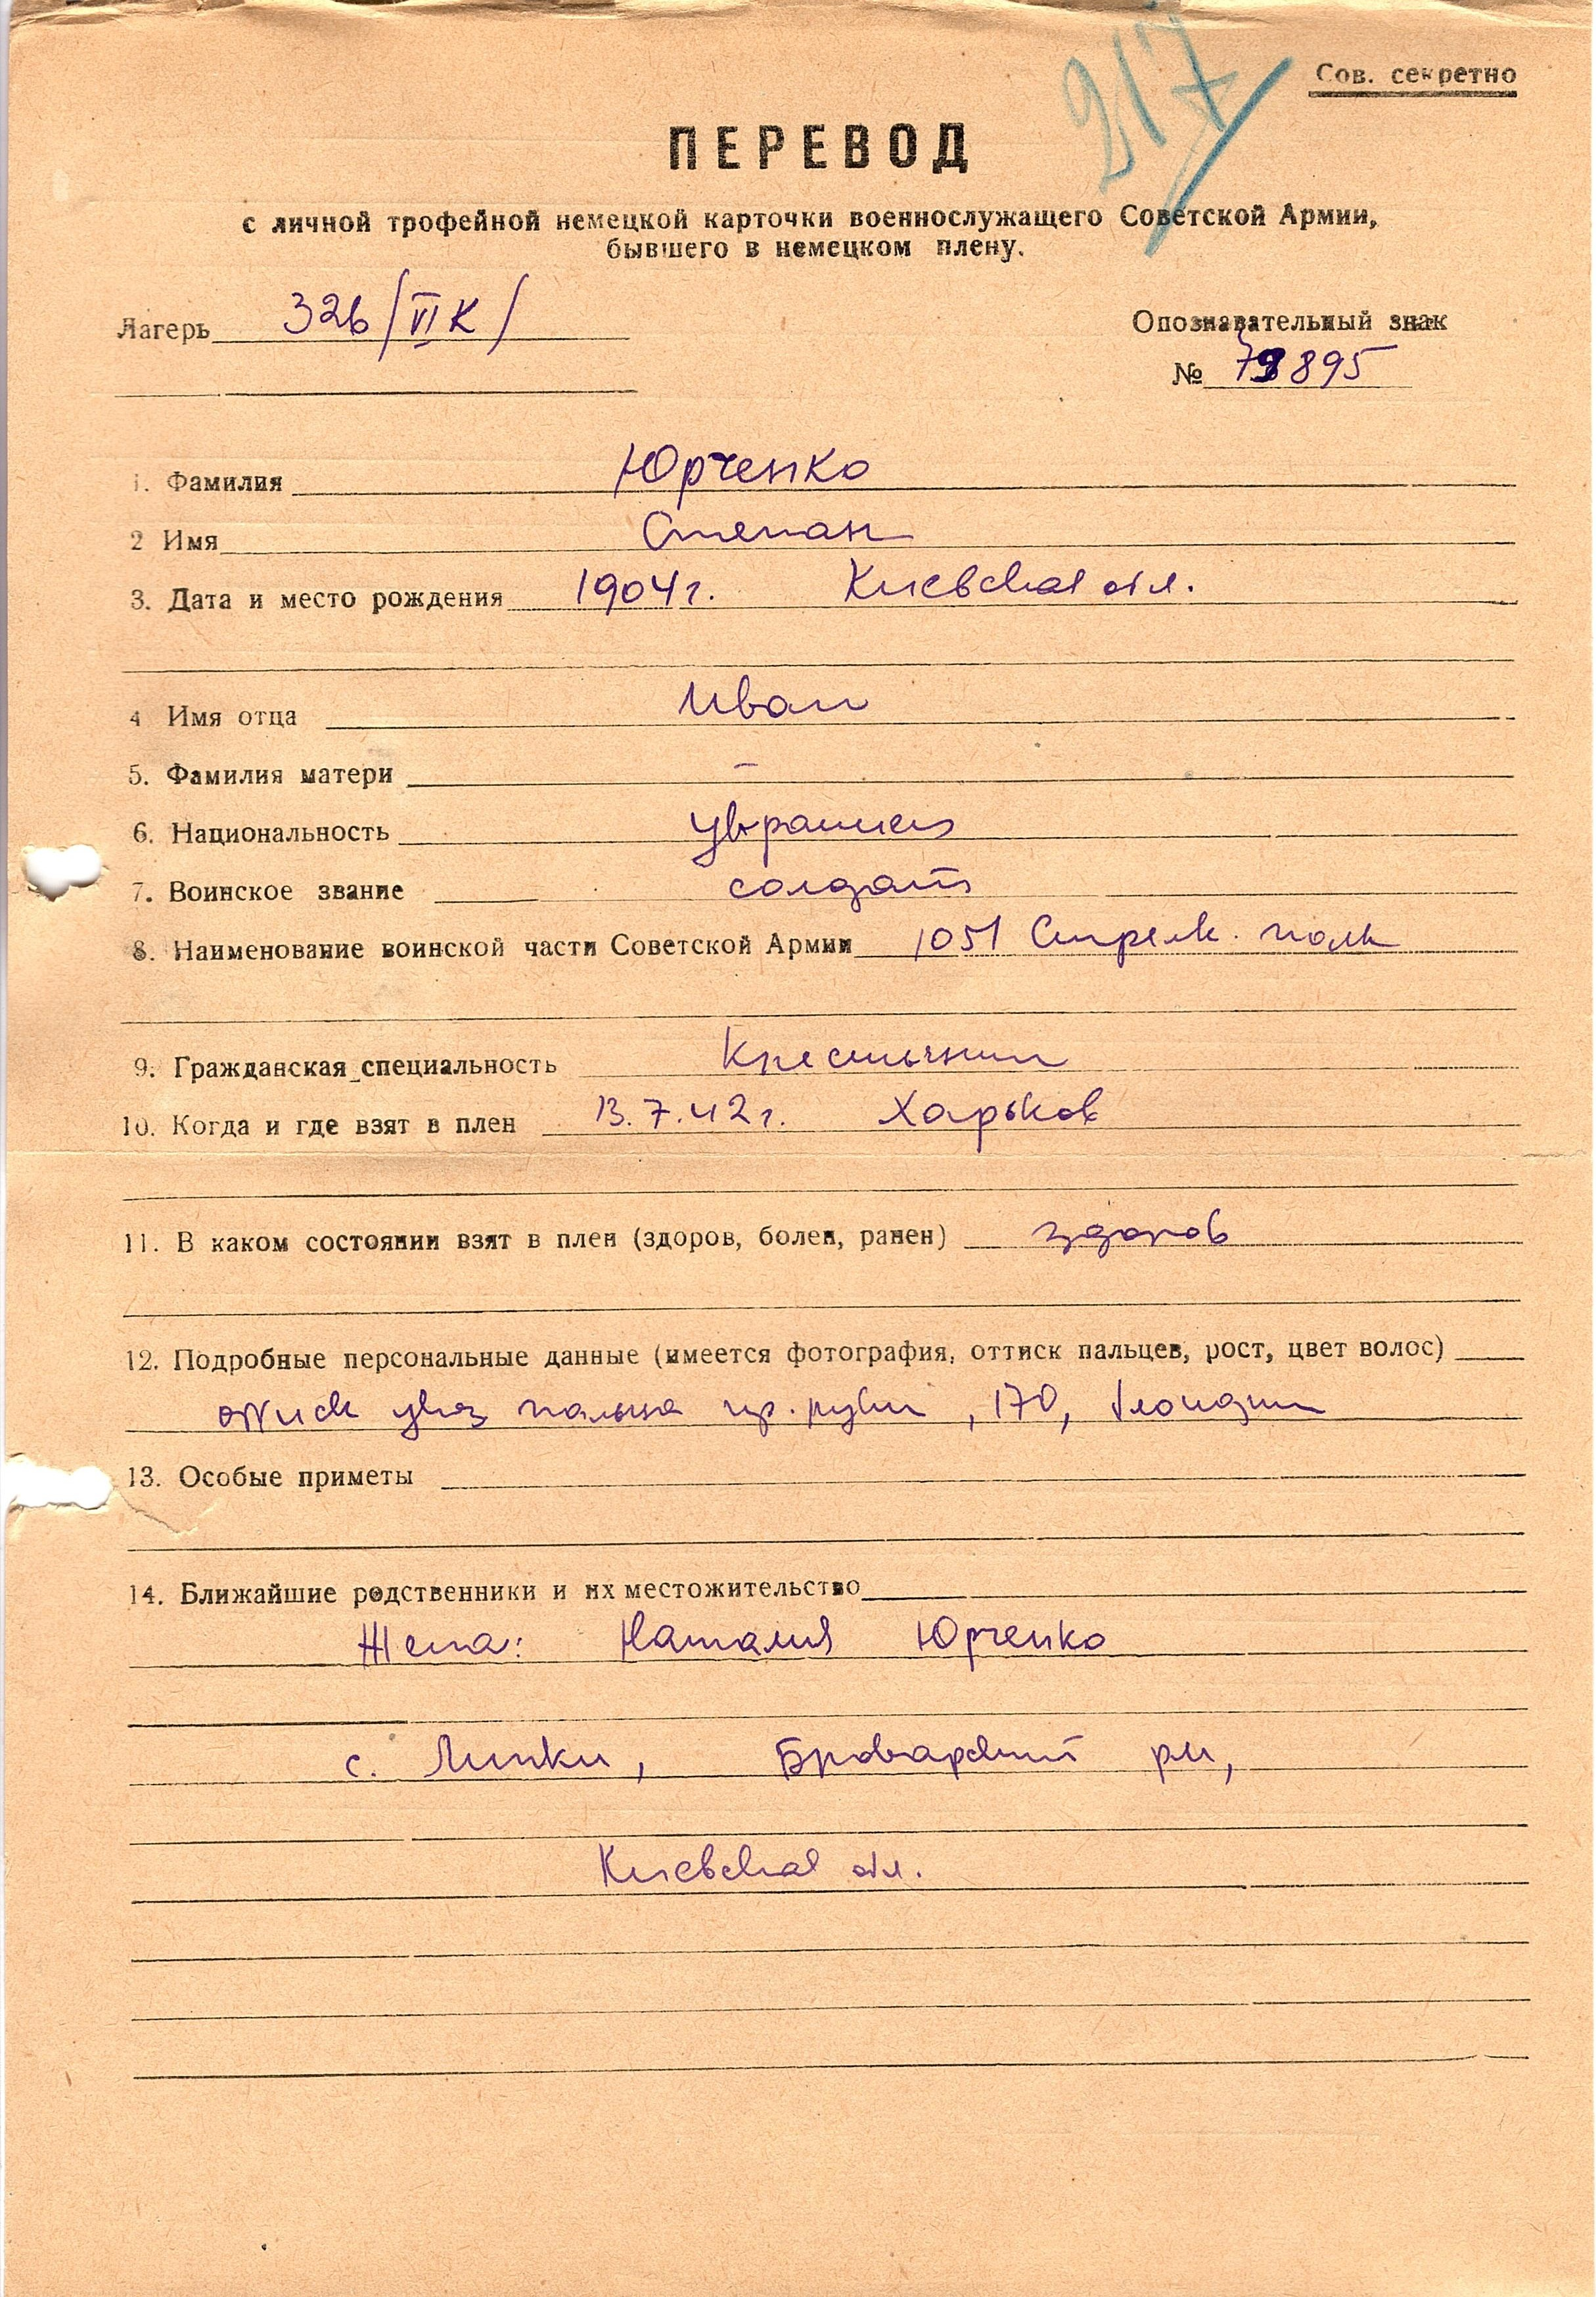 217
Сов. секретно
ПЕРЕВОД
с личной трофейной немецкой карточки военнослужащего Советской Армии,
бывшего в немецком плену.
Лагерь 326/VIК/
Опознавательный знак
№ 895
1. Фамилия Юрченко
2 Имя Степан
3. Дата и место рождения 1904 г. Киевская обл.
4 Имя отца Иван
5. Фамилия матери –
6. Национальность украинец
7. Воинское звание солдат
8. Наименование воинской части Советской Армии 1051 Стрелк. полк
9. Гражданская специальность Крестьянин
10. Когда и где взят в плен 13.7.42 г. Харьков
11. В каком состоянии взят в плен (здоров, болен, ранен) здоров
12. Подробные персональные данные (имеется фотография, оттиск пальцев, рост, цвет волос)
оттиск указ пальца пр. руки, 170, блондин
13. Особые приметы
14. Ближайшие родственники и их местожительство
Жена: Наталия Юрченко
с. Липки, Броварский р-н,
Киевская обл.